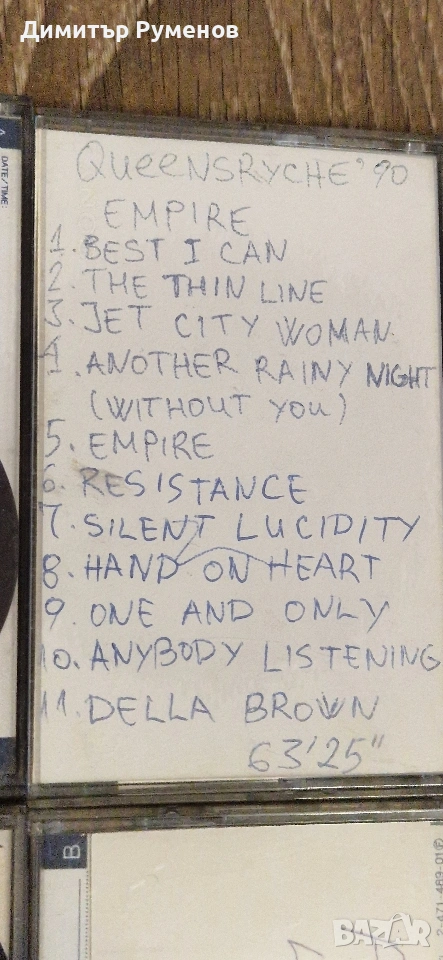 Димитър Руменов
QUEENSRYCHE '90
EMPIRE
1. BEST I CAN
2. THE THIN LINE
3. JET CITY WOMAN
4. ANOTHER RAINY NIGHT
(WITHOUT YOU)
5. EMPIRE
6. RESISTANCE
7. SILENT LUCIDITY
8. HAND ON HEART
9. ONE AND ONLY
10. ANYBODY LISTENING
11. DELLA BROWN
63'25"
A
DATE/TIME:
B
2-471-469-01
BAZAR